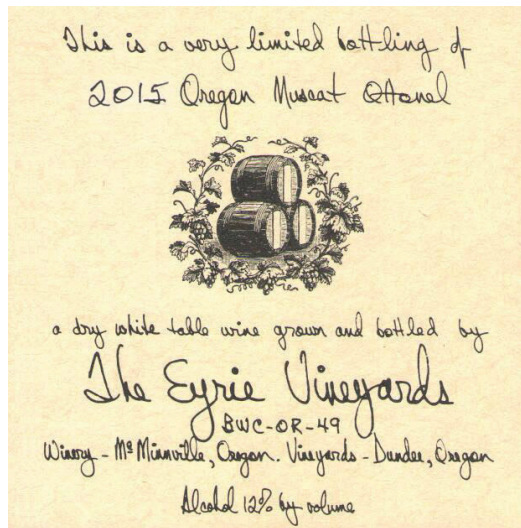 This is a very limited bottling of
2015 Oregon Muscat Ottonel
a dry white table wine grown and bottled by
The Eyrie Vineyards
BWC-OR-49
Winery - McMinnville, Oregon. Vineyards - Dundee, Oregon
Alcohol 12% by volume